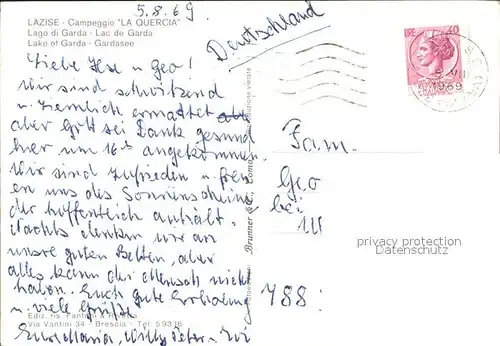 5.8.69
LAZISE - Campeggio "LA QUERCIA"
Lago di Garda - Lac de Garda
Lake of Garda - Gardasee
Deutschland
Liebe Ilse u. Geo!
Wir sind schwitzend
u. ziemlich ermattet
aber Gott sei Dank gesund
hier um 16h angekommen.
Wir sind zufrieden u. freu-
en uns des Sonnenscheins
der hoffentlich anhält.
Nachts denken wir an
unsre guten Betten, aber
alles kann der Mensch nicht
haben. Euch gute Erholung
u. viele Grüße
Eure Maria, Willy Peter u.
Ediz. ris.
Via Vantini 34 - Brescia - Tel. 59316
Brunner & C., Como
vietata
LIRE 40
1969
Fam.
Geo
bei
M
privacy protection
Datenschutz
788: